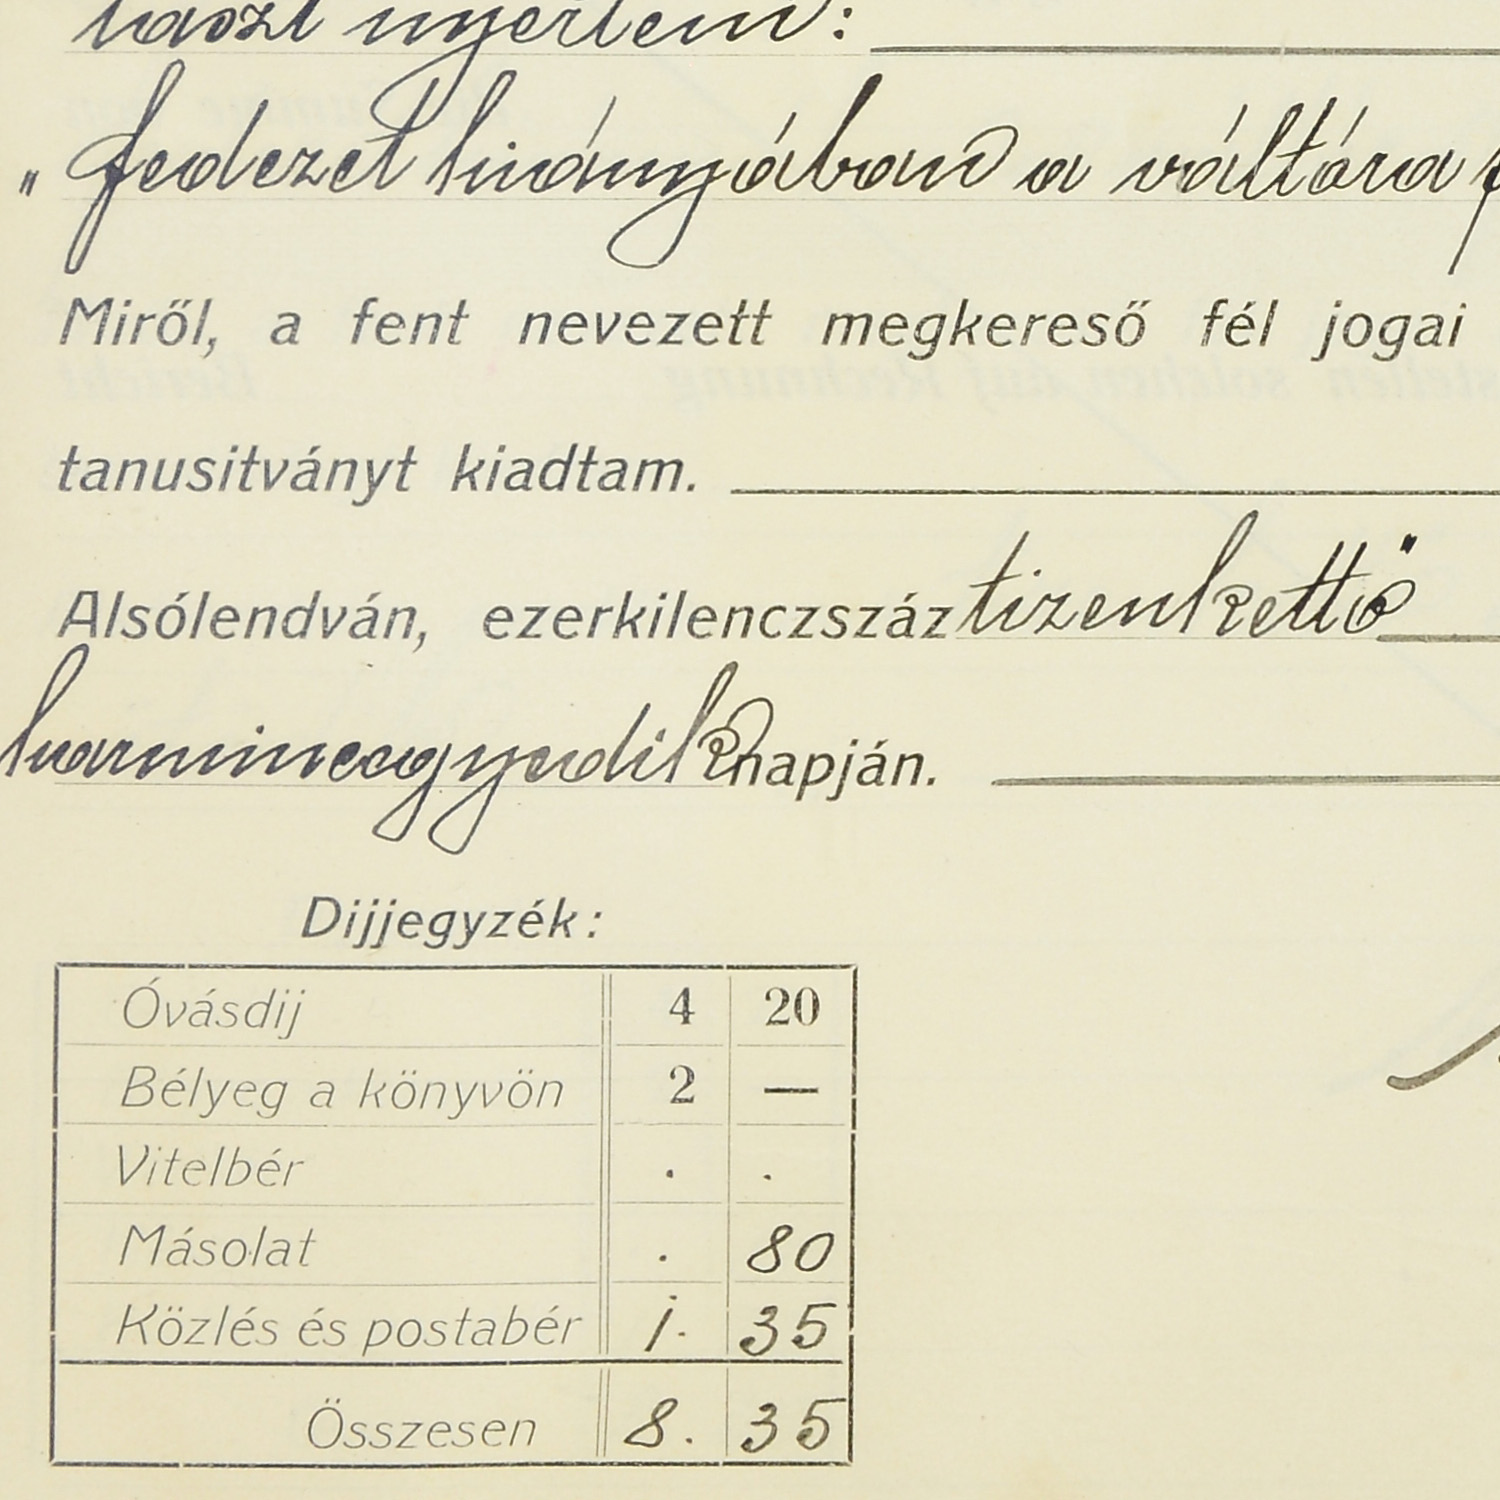 laszt nyertem:
„fedezet hiányában a váltóra
Miről, a fent nevezett megkereső fél jogai
tanusitványt kiadtam.
Alsólendván, ezerkilenczszáz tizenkettő
harminczegyedik napján.
Dijjegyzék:
Óvásdij 4 20
Bélyeg a könyvön 2 —
Vitelbér . .
Másolat . 80
Közlés és postabér 1. 35
Összesen 8. 35